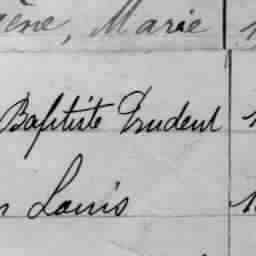 ène, Marie
Baptiste Prudent
Louis